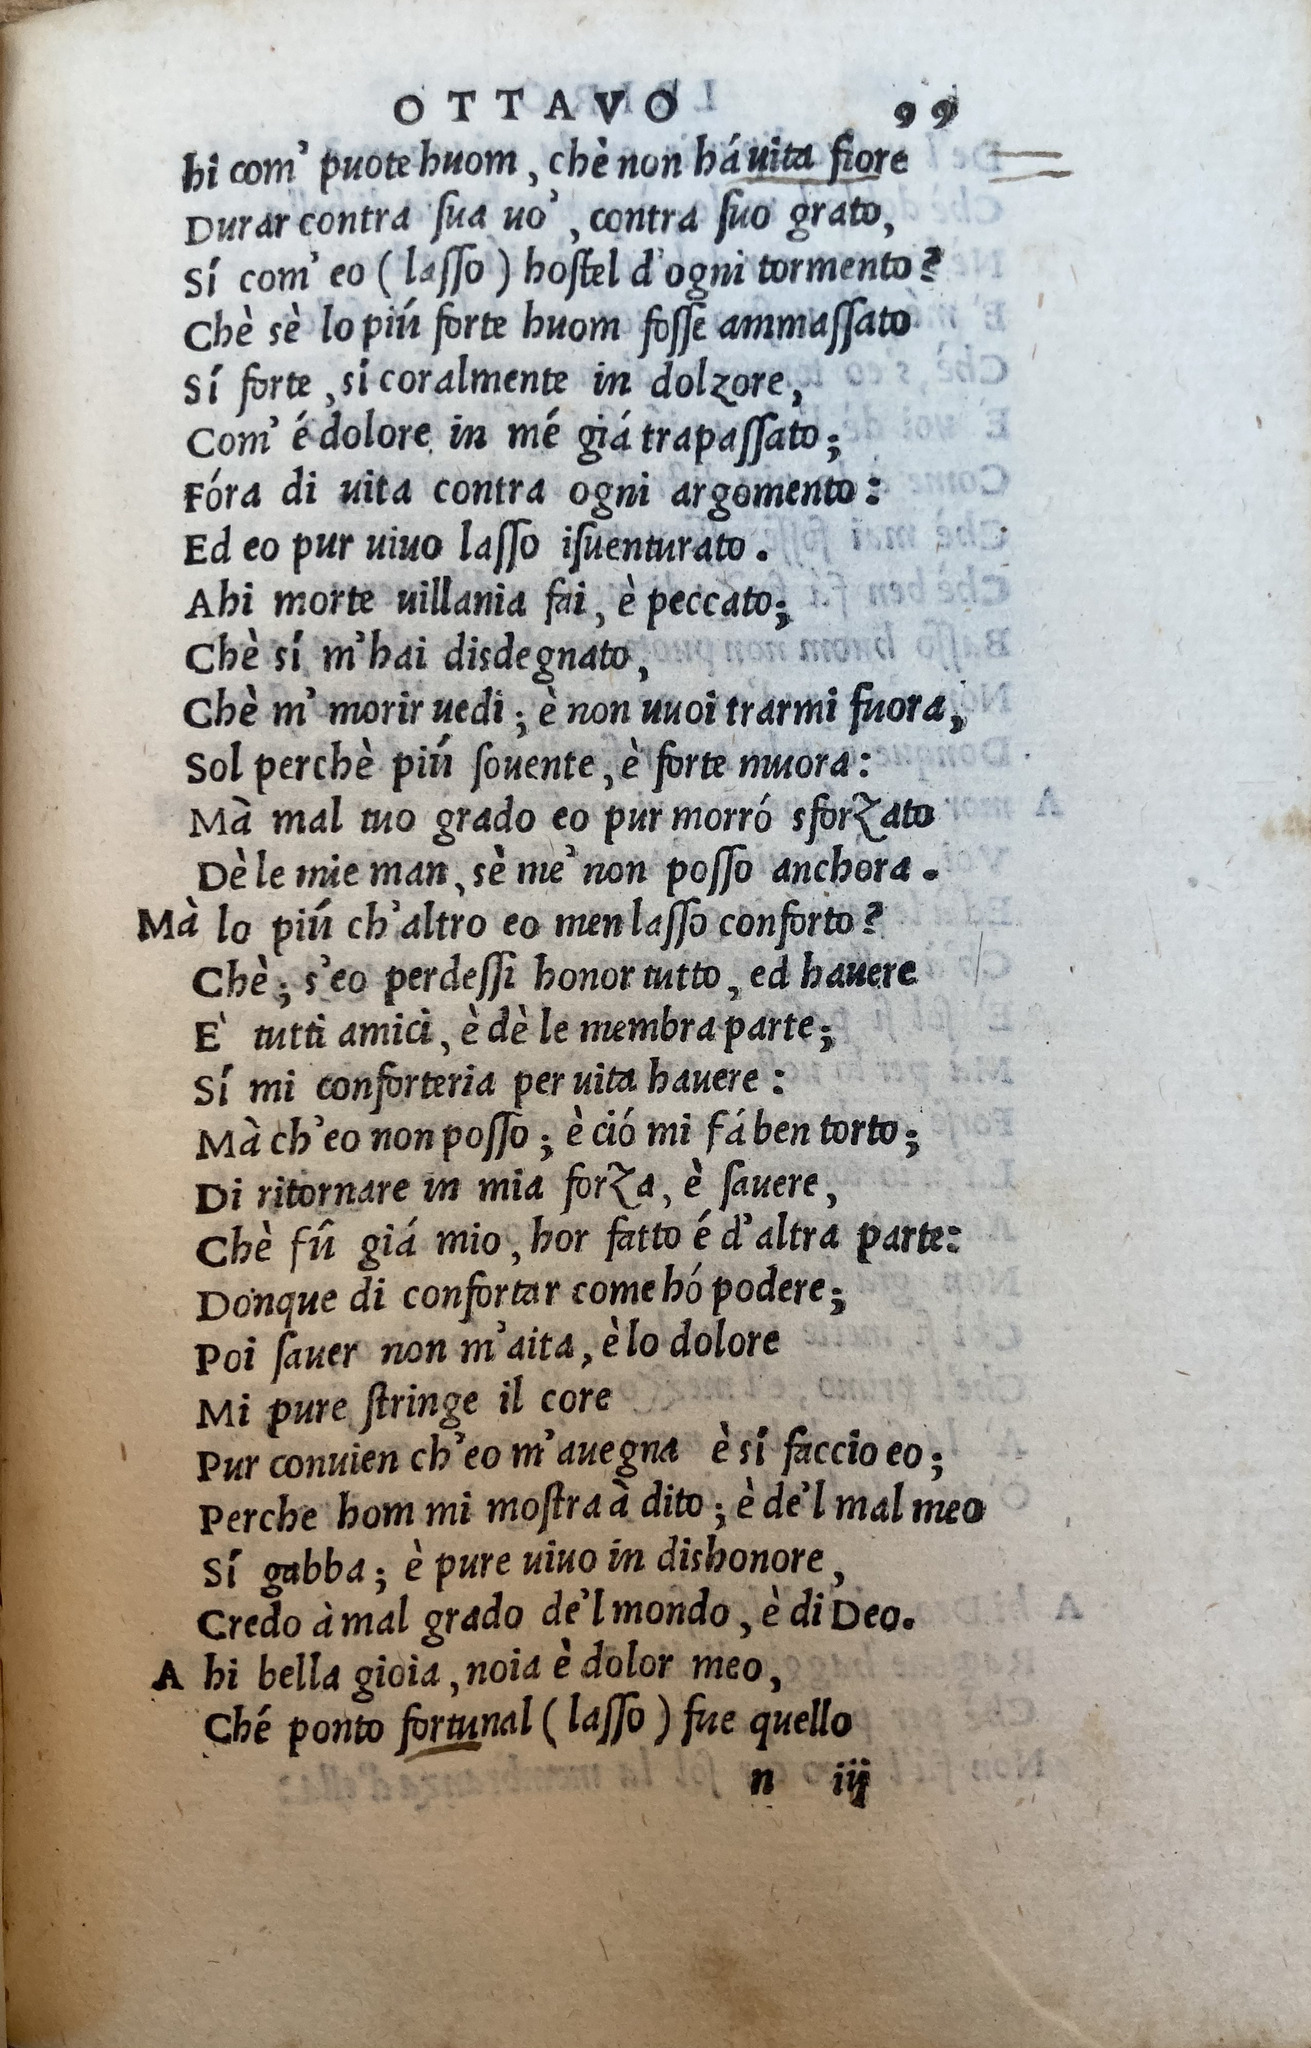 OTTAVO 99
hi com' puote huom, chè non há uita fiore
Durar contra sua uo', contra suo grato,
Sí com' eo (lasso) hostel d'ogni tormento?
Chè sè lo piú forte huom fosse ammassato
Sí forte, sí coralmente in dolzore,
Com' é dolore in mé giá trapassato;
Fóra di uita contra ogni argomento:
Ed eo pur uiuo lasso isuenturato.
Ahi morte uillania fai, è peccato;
Chè sí m'hai disdegnato,
Chè m' morir uedi; è non uuoi trarmi fuora,
Sol perchè piú souente, è forte muora:
Mà mal tuo grado eo pur morró sforzato
Dè le mie man, sè me' non posso anchora.
Mà lo piú ch'altro eo men lasso conforto?
Chè; s'eo perdessi honor tutto, ed hauere
E' tutti amici, è dè le membra parte;
Sí mi conforteria per uita hauere:
Mà ch'eo non posso; è ció mi fá ben torto;
Di ritornare in mia forza, è sauere,
Chè fû giá mio, hor fatto é d'altra parte:
Donque di confortar come hó podere;
Poi sauer non m'aita, è lo dolore
Mi pure stringe il core
Pur conuien ch'eo m'auegna è sí faccio eo;
Perche hom mi mostra à dito; è de'l mal meo
Sí gabba; è pure uiuo in dishonore,
Credo à mal grado de'l mondo, è di Deo.
A hi bella gioia, noia è dolor meo,
Ché ponto fortunal (lasso) fue quello
n iij